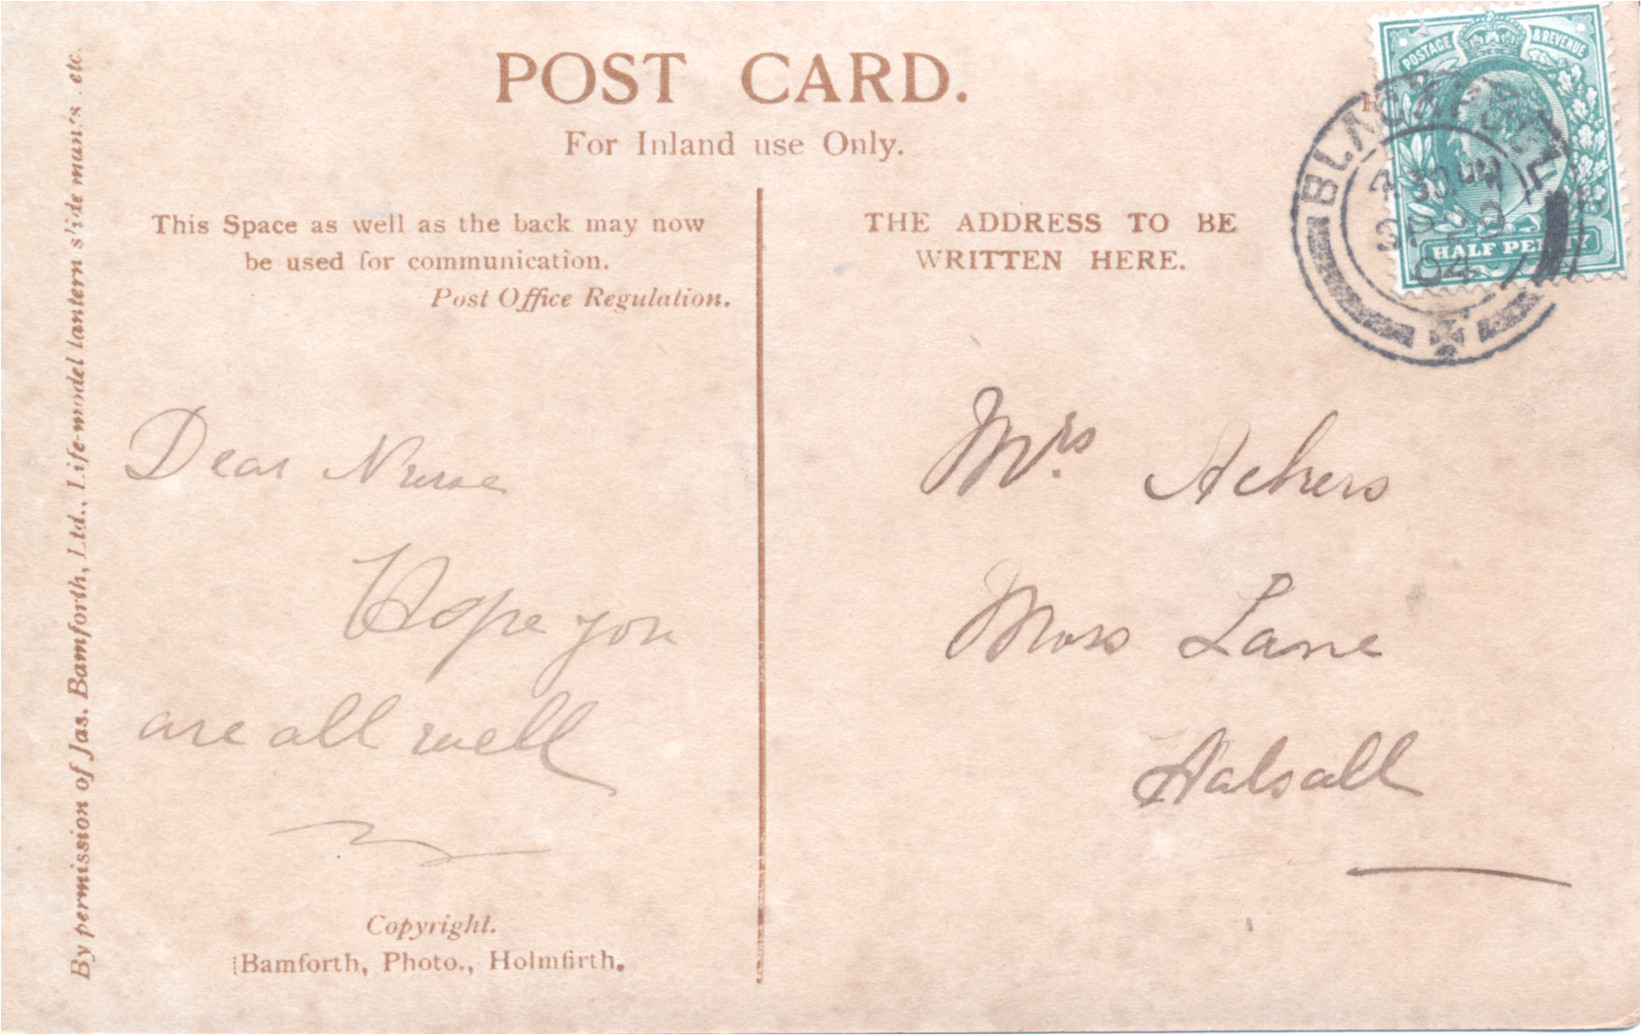 POST CARD.
For Inland use Only.
This Space as well as the back may now
be used for communication.
Post Office Regulation.
THE ADDRESS TO BE
WRITTEN HERE.
POSTAGE & REVENUE
HALF PENNY
BLACKPOOL
04
Dear Nurse
Hope you
are all well
Mrs Ackers
Moss Lane
Halsall
Copyright.
Bamforth, Photo., Holmfirth.
By permission of Jas. Bamforth, Ltd., Life-model lantern slide etc.